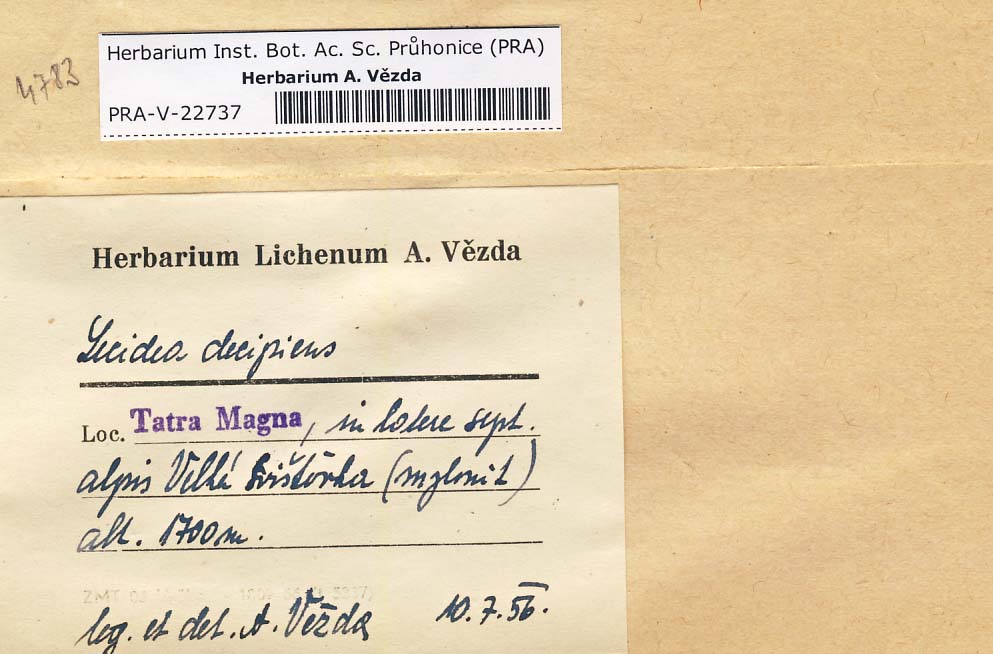 4783
Herbarium Inst. Bot. Ac. Sc. Průhonice (PRA)
Herbarium A. Vězda
PRA-V-22737
Herbarium Lichenum A. Vězda
Lecidea decipiens
Loc. Tatra Magna, in latere sept.
alpis Velká Svišťovka (mylonit)
alt. 1700 m.
ZMT 03
leg. et det. A. Vězda 10.7.56.